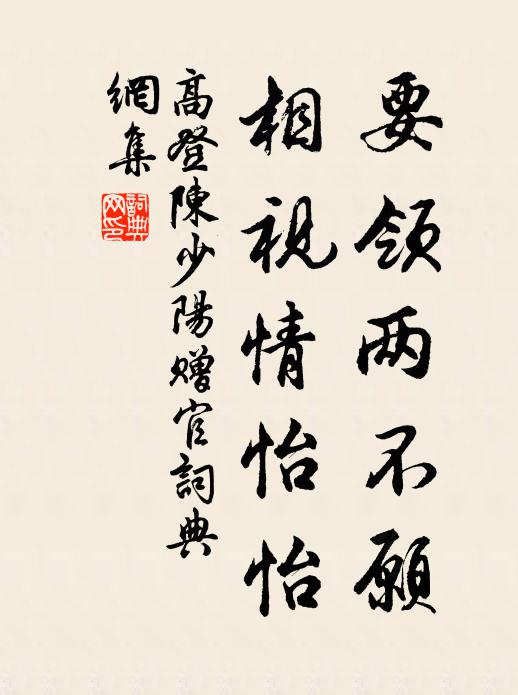 要领两不願
相視情怡怡
高登陳少陽贈官詞典
網集
詞典
网印